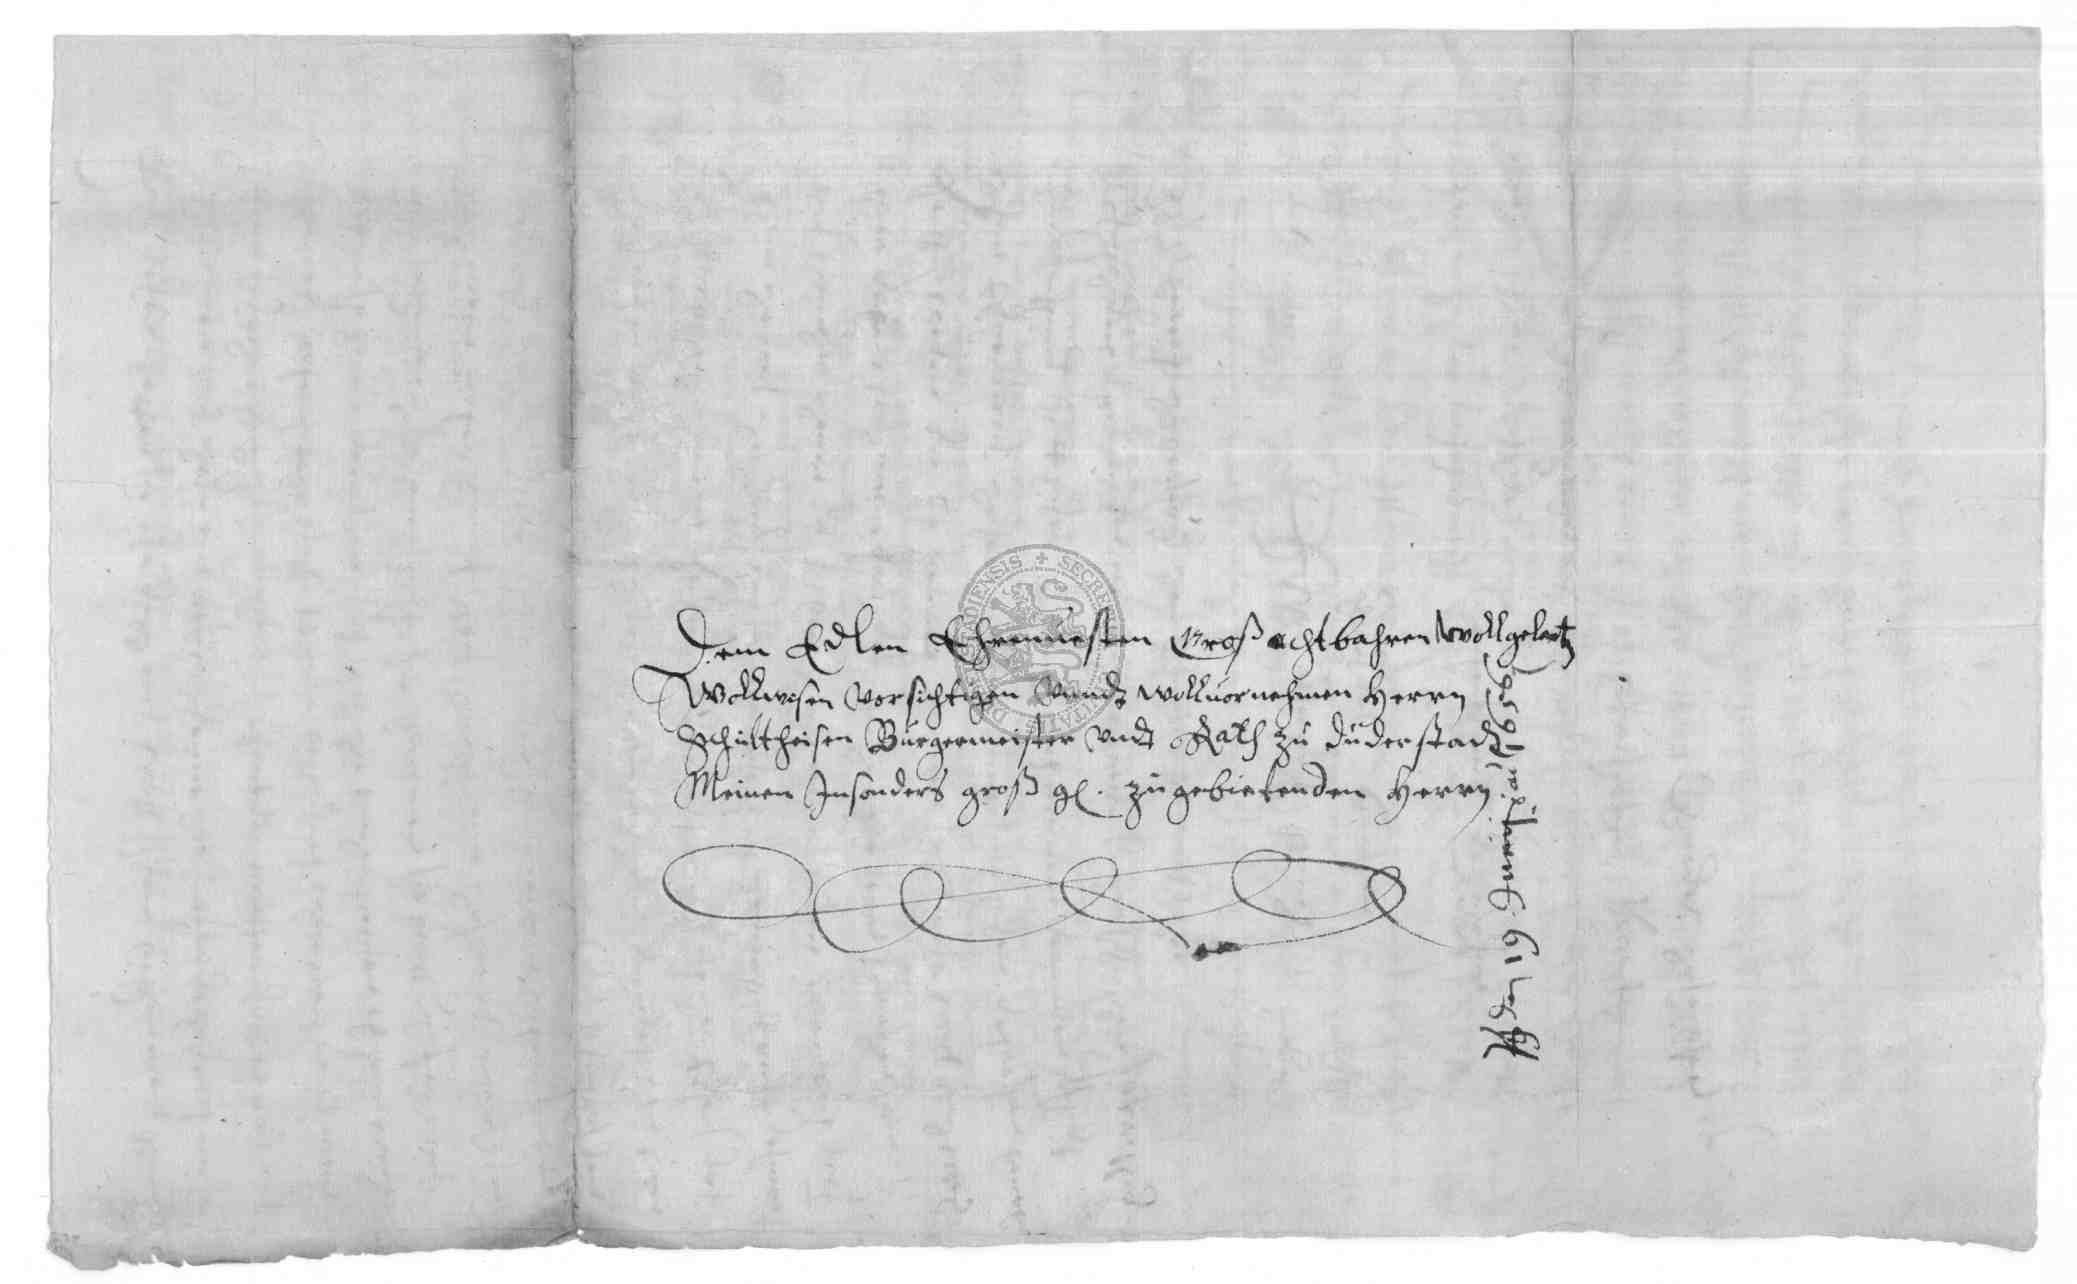 Dem Edlen Ehrenuesten Groß achtbahren Wollgelert
Wollwisen Vorsichtigen Vnndt Wolluornehmen Herrn
Schultheisen Burgermeister Vndt Rath zu duderstadt
Meinen Insonders groß gl. zugebietenden Herrn
den 19
SECRE
DIENSIS